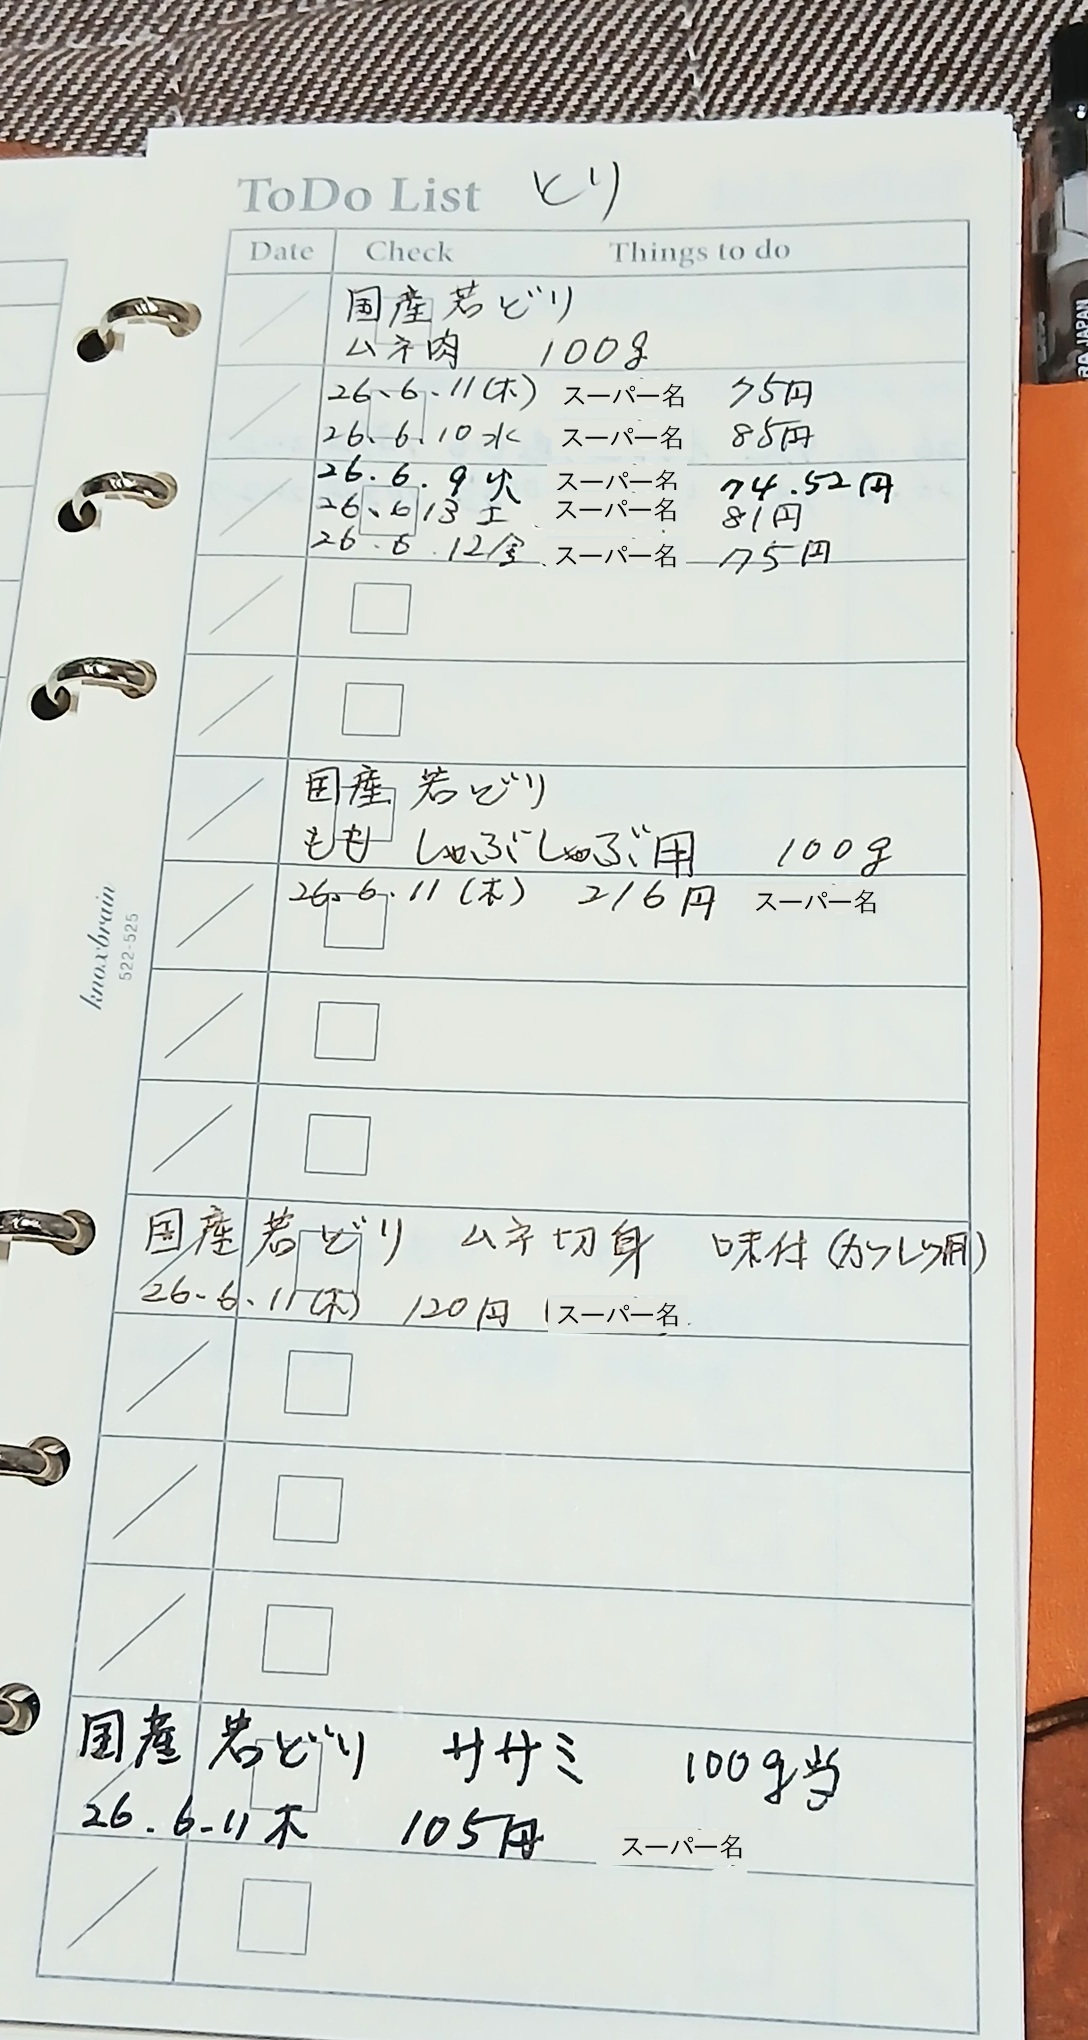 ToDo List とり
Date Check Things to do
国産若どり
ムネ肉 100g
26.6.11(木) スーパー名 75円
26.6.10水 スーパー名 85円
26.6.9火 スーパー名 74.52円
26.6.13土 スーパー名 81円
26.6.12金 スーパー名 75円
国産若どり
もも しゃぶしゃぶ用 100g
26.6.11(木) 216円 スーパー名
国産若どり ムネ切身 味付(カツレツ用)
26.6.11(木) 120円 スーパー名
国産若どり ササミ 100g当
26.6.11木 105円 スーパー名
knoxbrain
522-525
JAPAN